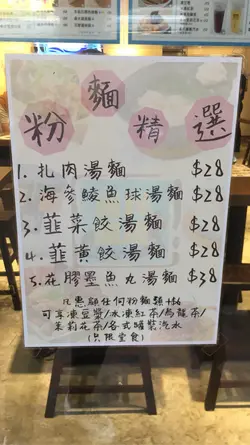 粉麵精選
1. 扎肉湯麵 $28
2. 海參鯪魚球湯麵 $28
3. 韮菜餃湯麵 $28
4. 韮黃餃湯麵 $28
5. 花膠墨魚丸湯麵 $38
凡惠顧任何粉麵類+$6
可享凍豆漿/冰凍紅茶/烏龍茶/
茉莉花茶/各式罐裝汽水
(只限堂食)